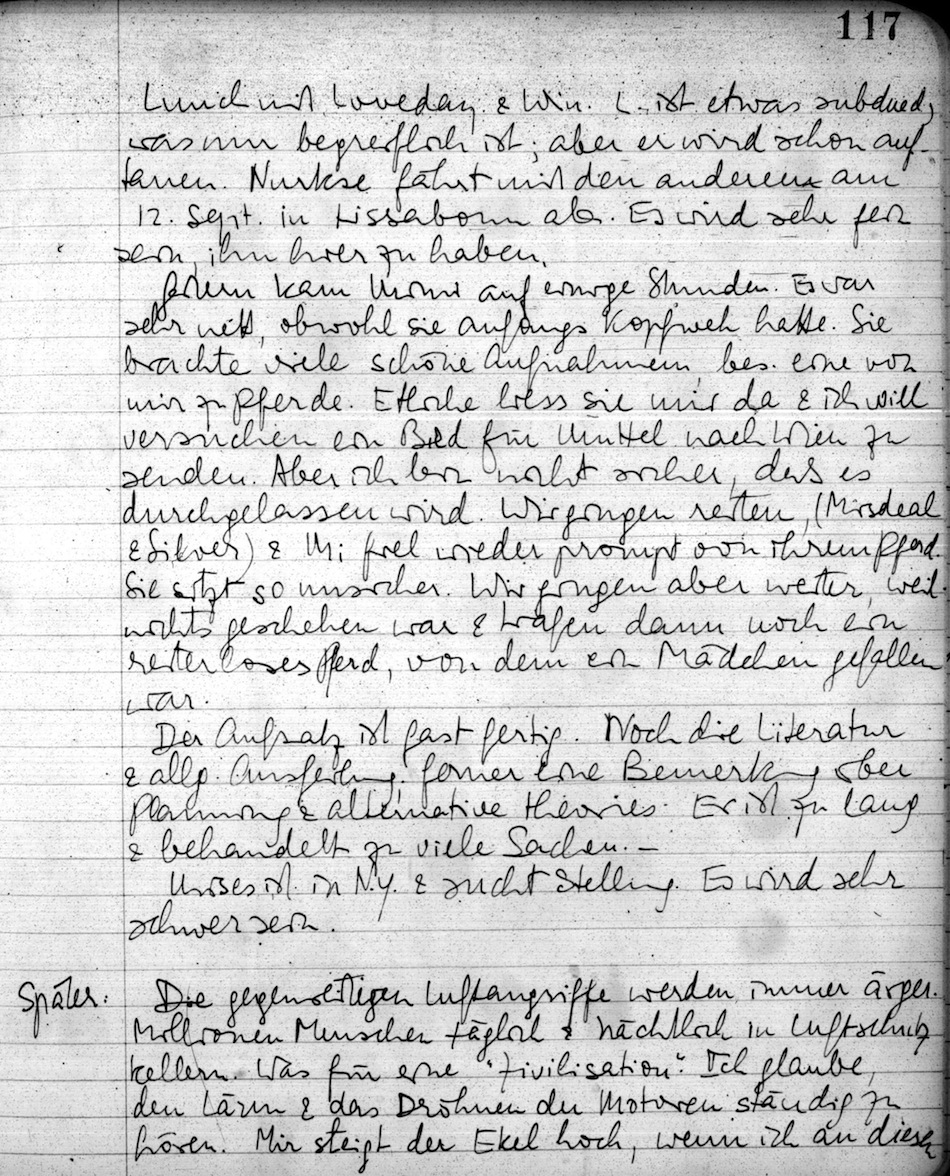 117
Lunch mit Loveday & Win. L. ist etwas subdued,
was nur begreiflich ist; aber er wird schon auf-
tauen. Nurkse fährt mit den anderen am
12. Sept. in Lissabonn ab. Es wird sehr fein
sein, ihn hier zu haben.
Gestern kam Mimi auf einige Stunden. Es war
sehr nett, obwohl sie anfangs Kopfweh hatte. Sie
brachte viele schöne Aufnahmen, bes. eine von
mir zu Pferde. Etliche liess sie mir da & ich will
versuchen ein Bild für Muttel nach Wien zu
senden. Aber ich bin nicht sicher, dass es
durchgelassen wird. Wir gingen reiten, (Misdeal
& Silver) & Mi fiel wieder prompt von ihrem Pferd.
Sie sitzt so unsicher. Wir gingen aber weiter, weil
nichts geschehen war & trafen dann noch ein
reiterloses Pferd, von dem ein Mädchen gefallen
war.
Der Aufsatz ist fast fertig. Noch die Literatur
& allg. Ausfeilung, ferner eine Bemerkung über
Planning & alternative theories. Er ist zu lang
& behandelt zu viele Sachen. –
Mises ist in N.Y. & sucht Stellung. Es wird sehr
schwer sein.
Später: Die gegenseitigen Luftangriffe werden immer ärger.
Millionen Menschen täglich & nächtlich in Luftschutz
kellern. Was für eine "Zivilisation". Ich glaube,
den Lärm & das Dröhnen der Motoren ständig zu
hören. Mir steigt der Ekel hoch, wenn ich an diesen